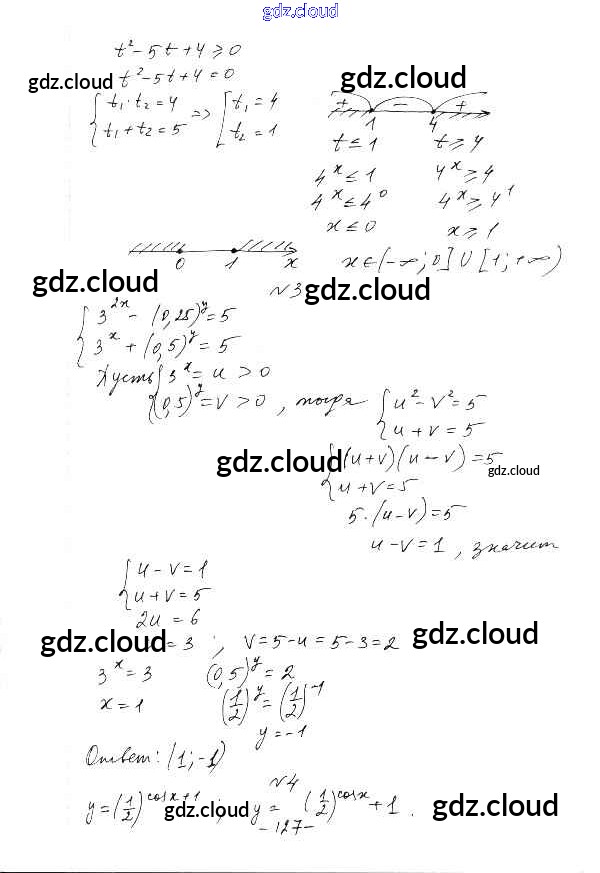 gdz.cloud
t² - 5t + 4 ≥ 0
gdz.cloud t² - 5t + 4 = 0 gdz.cloud
{ t₁ · t₂ = 4 => [ t₁ = 4
{ t₁ + t₂ = 5 [ t₂ = 1
+ - +
1 4
t ≤ 1 t ≥ 4
4^x ≤ 1 4^x ≥ 4
4^x ≤ 4^0 4^x ≥ 4^1
x ≤ 0 x ≥ 1
0 1 x x ∈ (-∞; 0] ∪ [1; +∞)
gdz.cloud N 3 gdz.cloud
{ 3^2x - (0,25)^y = 5
{ 3^x + (0,5)^y = 5
Пусть { 3^x = u > 0
{ (0,5)^y = v > 0, тогда { u² - v² = 5
{ u + v = 5
gdz.cloud { (u + v)(u - v) = 5 gdz.cloud
{ u + v = 5
5 · (u - v) = 5
u - v = 1, значит
{ u - v = 1
{ u + v = 5
2u = 6
gdz.cloud = 3 ; v = 5 - u = 5 - 3 = 2 gdz.cloud
3^x = 3 (0,5)^y = 2
x = 1 (1/2)^y = (1/2)^-1
y = -1
Ответ: (1; -1)
N 4
y = (1/2)^cosx+1 gdz.cloud y = (1/2)^cosx + 1 . gdz.cloud
- 127 -